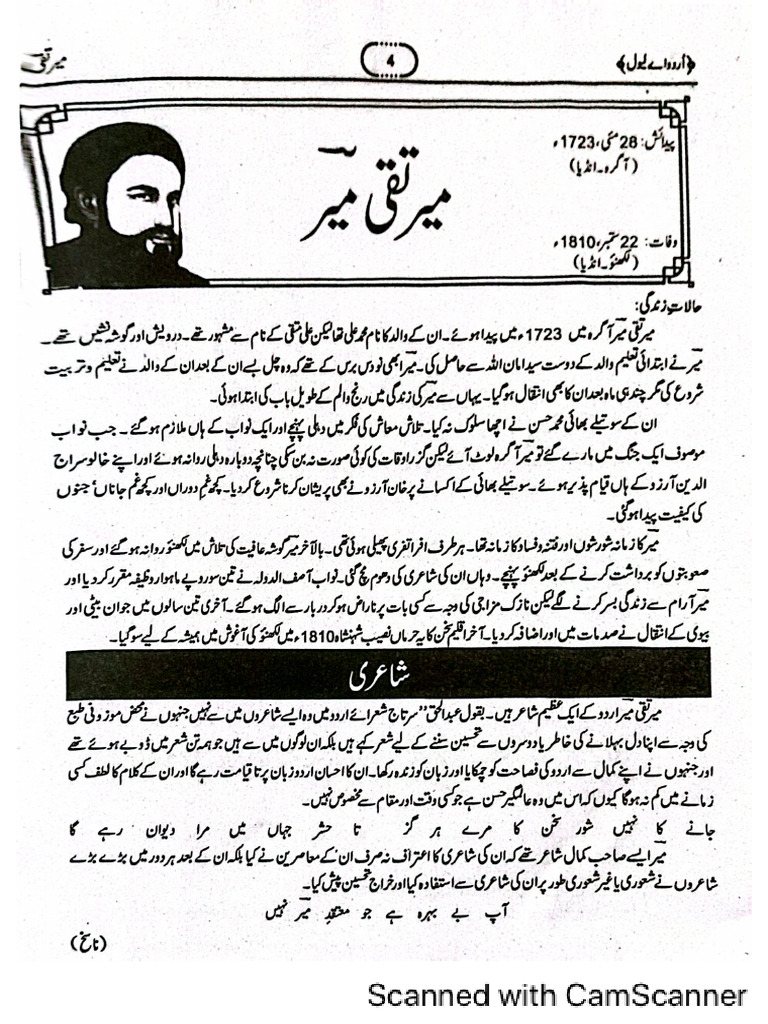 ﴿اُردو اے لیول﴾
4
میر تقی
پیدائش: 28 مئی، 1723ء
(آگرہ۔انڈیا)
میر تقی میر
وفات: 22 ستمبر، 1810ء
(لکھنؤ۔انڈیا)
حالاتِ زندگی:
میر تقی میر آگرہ میں 1723ء میں پیدا ہوئے۔ ان کے والد کا نام محمد علی تھا لیکن علی متقی کے نام سے مشہور تھے۔ درویش اور گوشہ نشیں تھے۔
میر نے ابتدائی تعلیم والد کے دوست سید امان اللہ سے حاصل کی۔ میر ابھی نو دس برس کے تھے کہ وہ چل بسے ان کے بعد ان کے والد نے تعلیم و تربیت
شروع کی مگر چند ہی ماہ بعد ان کا بھی انتقال ہو گیا۔ یہاں سے میر کی زندگی میں رنج و الم کے طویل باب کی ابتدا ہوئی۔
ان کے سوتیلے بھائی محمد حسن نے اچھا سلوک نہ کیا۔ تلاش معاش کی فکر میں دہلی پہنچے اور ایک نواب کے ہاں ملازم ہو گئے۔ جب نواب
موصوف ایک جنگ میں مارے گئے تو میر آگرہ لوٹ آئے لیکن گزر اوقات کی کوئی صورت نہ بن سکی چنانچہ دوبارہ دہلی روانہ ہوئے اور اپنے خالو سراج
الدین آرزو کے ہاں قیام پذیر ہوئے۔ سوتیلے بھائی کے اکسانے پر خان آرزو نے بھی پریشان کرنا شروع کر دیا۔ کچھ غمِ دوراں اور کچھ غمِ جاناں' جنوں
کی کیفیت پیدا ہو گئی۔
میر کا زمانہ شورشوں اور فتنہ و فساد کا زمانہ تھا۔ ہر طرف افراتفری پھیلی ہوئی تھی۔ بالآخر میر گوشہ عافیت کی تلاش میں لکھنؤ روانہ ہو گئے اور سفر کی
صعوبتوں کو برداشت کرنے کے بعد لکھنؤ پہنچے۔ وہاں ان کی شاعری کی دھوم مچ گئی۔ نواب آصف الدولہ نے تین سو روپے ماہوار وظیفہ مقرر کر دیا اور
میر آرام سے زندگی بسر کرنے لگے لیکن نازک مزاجی کی وجہ سے کسی بات پر ناراض ہو کر دربار سے الگ ہو گئے۔ آخری تین سالوں میں جوان بیٹی اور
بیوی کے انتقال نے صدمات میں اور اضافہ کر دیا۔ آخر اقلیم سخن کا یہ حرماں نصیب شہنشاہ 1810ء میں لکھنؤ کی آغوش میں ہمیشہ کے لیے سو گیا۔
شاعری
میر تقی میر اردو کے ایک عظیم شاعر ہیں۔ بقول عبدالحق "سرتاج شعرائے اردو میں وہ ایسے شاعروں میں سے نہیں جنہوں نے محض موزونی طبع
کی وجہ سے اپنا دل بہلانے کی خاطر یا دوسروں سے تحسین سننے کے لیے شعر کہے ہیں بلکہ ان لوگوں میں سے ہیں جو ہمہ تن شعر میں ڈوبے ہوئے تھے
اور جنہوں نے اپنے کمال سے اردو کی فصاحت کو چمکایا اور زبان کو زندہ رکھا۔ ان کا احسان اردو زبان پر تا قیامت رہے گا اور ان کے کلام کا لطف کسی
زمانے میں کم نہ ہوگا کیوں کہ اس میں وہ عالمگیر حسن ہے جو کسی وقت اور مقام سے مخصوص نہیں۔
جانے کا نہیں شور سخن کا مرے ہرگز تا حشر جہاں میں مرا دیوان رہے گا
میر ایسے صاحب کمال شاعر تھے کہ ان کی شاعری کا اعتراف نہ صرف ان کے معاصرین نے کیا بلکہ ان کے بعد ہر دور میں بڑے بڑے
شاعروں نے شعوری یا غیر شعوری طور پر ان کی شاعری سے استفادہ کیا اور خراج تحسین پیش کیا۔
آپ بے بہرہ ہے جو معتقدِ میر نہیں
(ناسخ)
Scanned with CamScanner